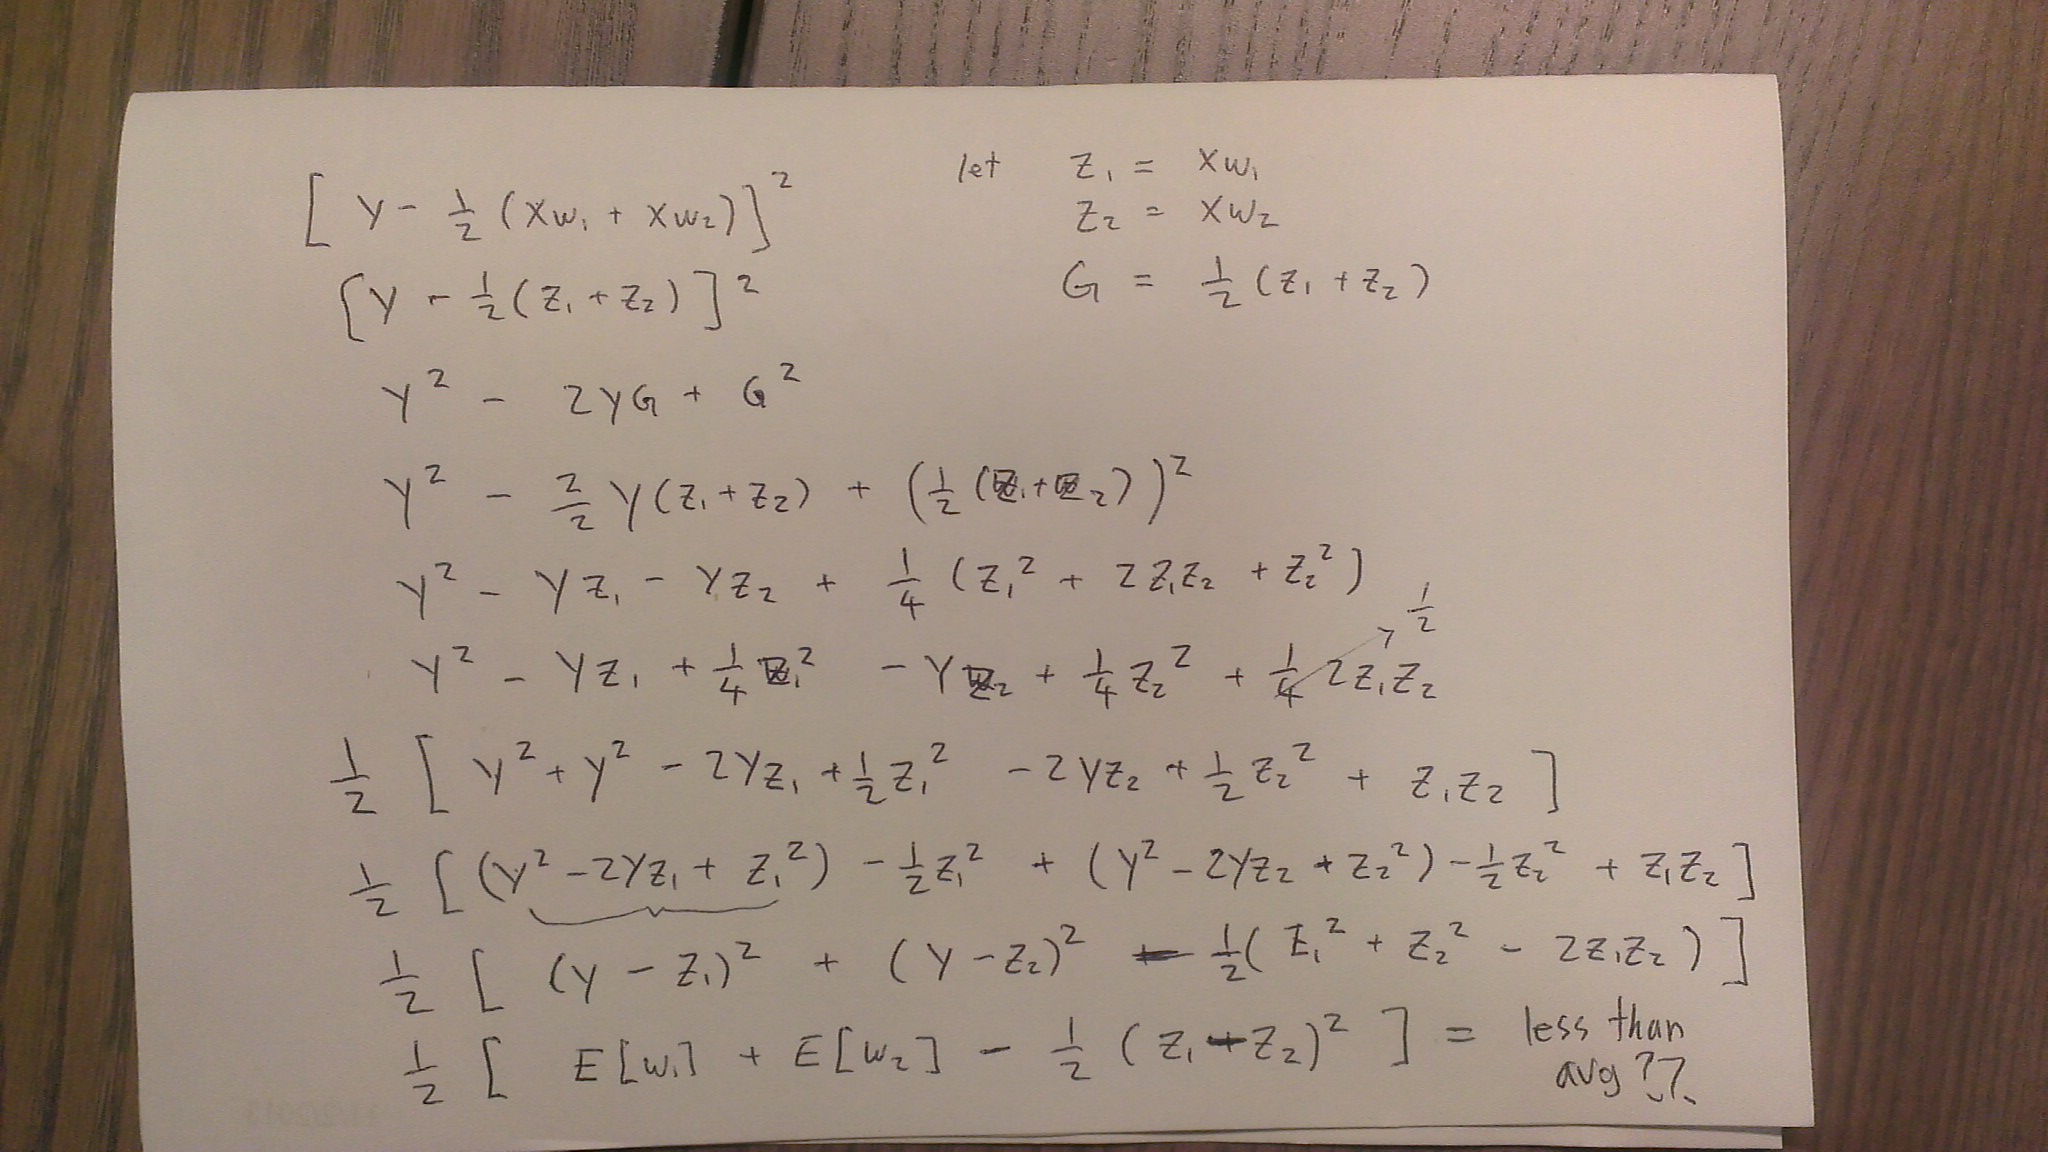 [Y - 1/2 (Xw₁ + Xw₂)]²
let z₁ = Xw₁
z₂ = Xw₂
[Y - 1/2 (z₁ + z₂)]²
G = 1/2 (z₁ + z₂)
Y² - 2YG + G²
Y² - 2/2 Y(z₁ + z₂) + (1/2 (z₁ + z₂))²
Y² - Yz₁ - Yz₂ + 1/4 (z₁² + 2z₁z₂ + z₂²)
1/2
Y² - Yz₁ + 1/4 z₁² - Yz₂ + 1/4 z₂² + 1/4 2z₁z₂
1/2 [Y² + Y² - 2Yz₁ + 1/2 z₁² - 2Yz₂ + 1/2 z₂² + z₁z₂]
1/2 [(Y² - 2Yz₁ + z₁²) - 1/2 z₁² + (Y² - 2Yz₂ + z₂²) - 1/2 z₂² + z₁z₂]
1/2 [(Y - z₁)² + (Y - z₂)² - 1/2 (z₁² + z₂² - 2z₁z₂)]
1/2 [E[w₁] + E[w₂] - 1/2 (z₁ - z₂)²] = less than
avg??